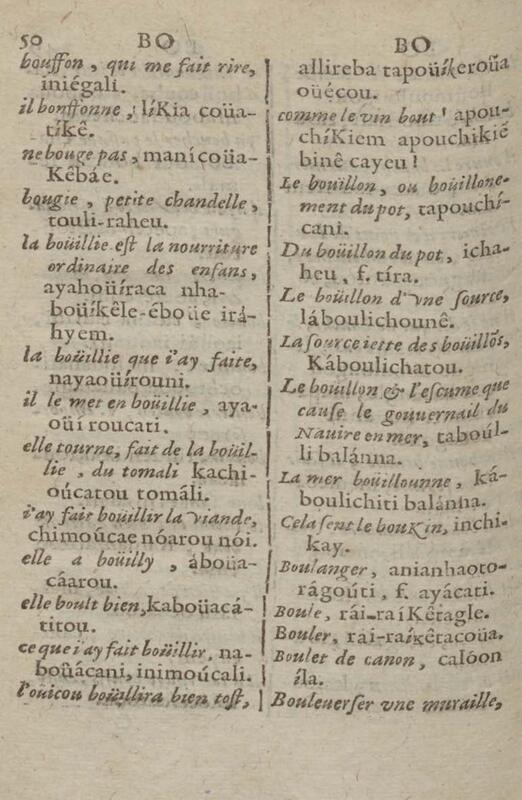 50 BO
bouffon, qui me fait rire,
iniégali.
il bonffonne, líKia coüa-
tíkê.
ne bouge pas, manícoüa-
Kêbáe.
bougie, petite chandelle,
touli-raheu.
la boüillie est la nourriture
ordinaire des enfans,
ayahoüíraca nha-
boüíkêle-éboüe irá-
hyem.
la boüillie que i'ay faite,
nayaoüírouni.
il le met en boüillie, aya-
oüí roucati.
elle tourne, fait de la boüil-
lie, du tomali kachi-
oúcatou tomáli.
i'ay fait boüillir la viande,
chimoúcae nóarou nói.
elle a boüilly, áboüa-
cáarou.
elle boult bien, kaboüacá-
titou.
ce que i'ay fait boüillir, na-
boüácani, inimoúcali.
l'oüicou boüillira bien tost,
BO
allireba tapoüíkeroüa
oüécou.
comme le vin bout! apou-
chíKiem apouchikié
binê cayeu!
Le boüillon, ou boüillone-
ment du pot, tapouchí-
cani.
Du boüillon du pot, icha-
heu, f. tíra.
Le boüillon d'vne source,
láboulichounê.
La source iette des boüillõs,
Káboulichatou.
Le boüillon & l'escume que
cause le gouuernail du
Nauire en mer, taboúl-
li balánna.
La mer boüillounne, ká-
boulichiti balánna.
Cela sent le bouKin, inchi-
kay.
Boulanger, anianhaoto-
rágoúti, f. ayácati.
Boule, rái-raíKêtagle.
Bouler, rái-raíkêtacoüa.
Boulet de canon, calóon
íla.
Bouleuerser vne muraille,